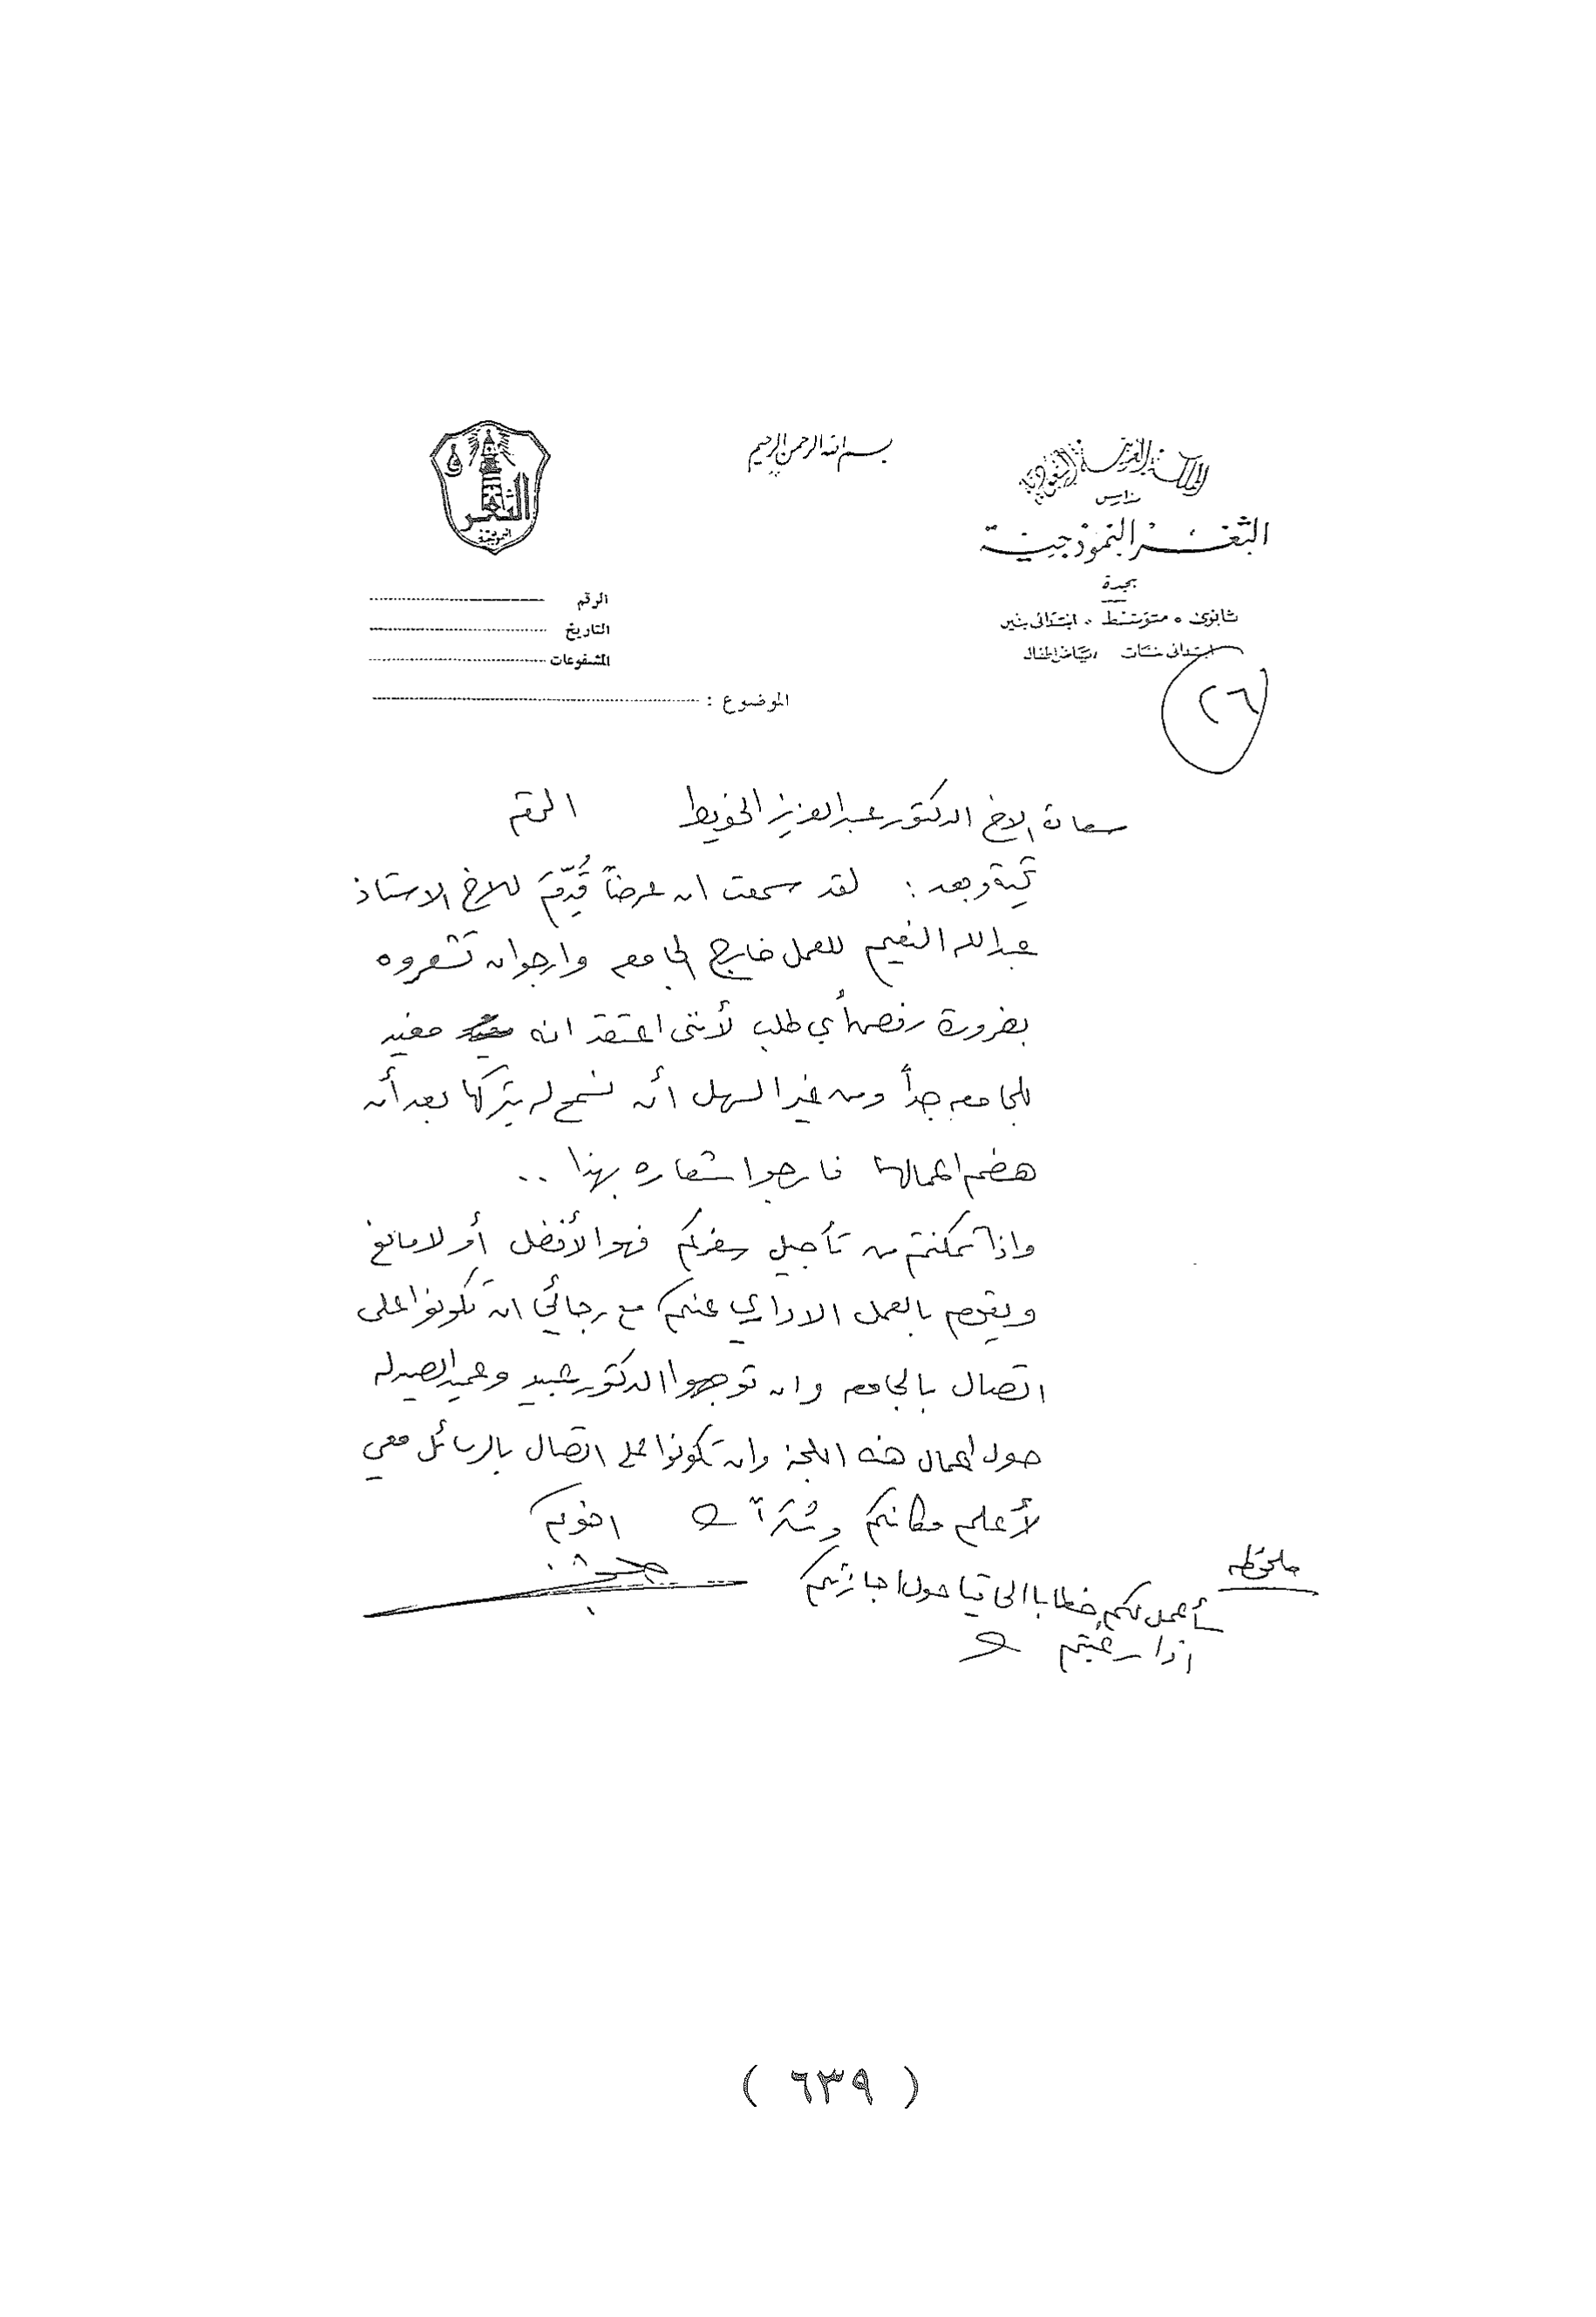 المملكة العربية السعودية
مدارس
الثغر النموذجية
بجدة
ثانوى • متوسط • ابتدائى بنين
ابتدائى بنات رياض اطفال
٢٦
بسم الله الرحمن الرحيم
الثغر
النموذجية
الرقم
التاريخ
المشفوعات
الموضوع :
سعادة الاخ الدكتور عبدالعزيز الخويطر المحترم
تحية وبعد : لقد سمعت ان عرضاً قُدِّمَ للاخ الاستاذ
عبدالله النعيم للعمل خارج الجامعه وارجوان تشعروه
بضرورة رفض أي طلب لأننى اعتقد انه مفيد
للجامعه جداً ومن غير السهل أن نسمح له بتركها بعد أن
هضم اعمالها فارجوا شعاره بهذا ..
واذا تمكنتم من تأجيل سفركم فهو الأفضل أو لا مانع
ويقوم بالعمل الاداري عنكم مع رجائي ان تكونوا على
اتصال بالجامعه وان توجهوا الدكتور عبيد وعميد الصيدله
حول اعمال هذه اللجنة وان تكونوا على اتصال بالرسائل معي
لأعلم مكانكم وشكراً اخوكم
ملحوظه
سأعمل لكم خطابا الى حول اجازتكم
اذا رغبتم
( ٦٣٩ )